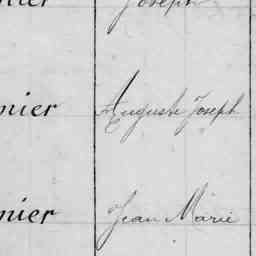 nier Joseph
nier Auguste Joseph
nier Jean Marie